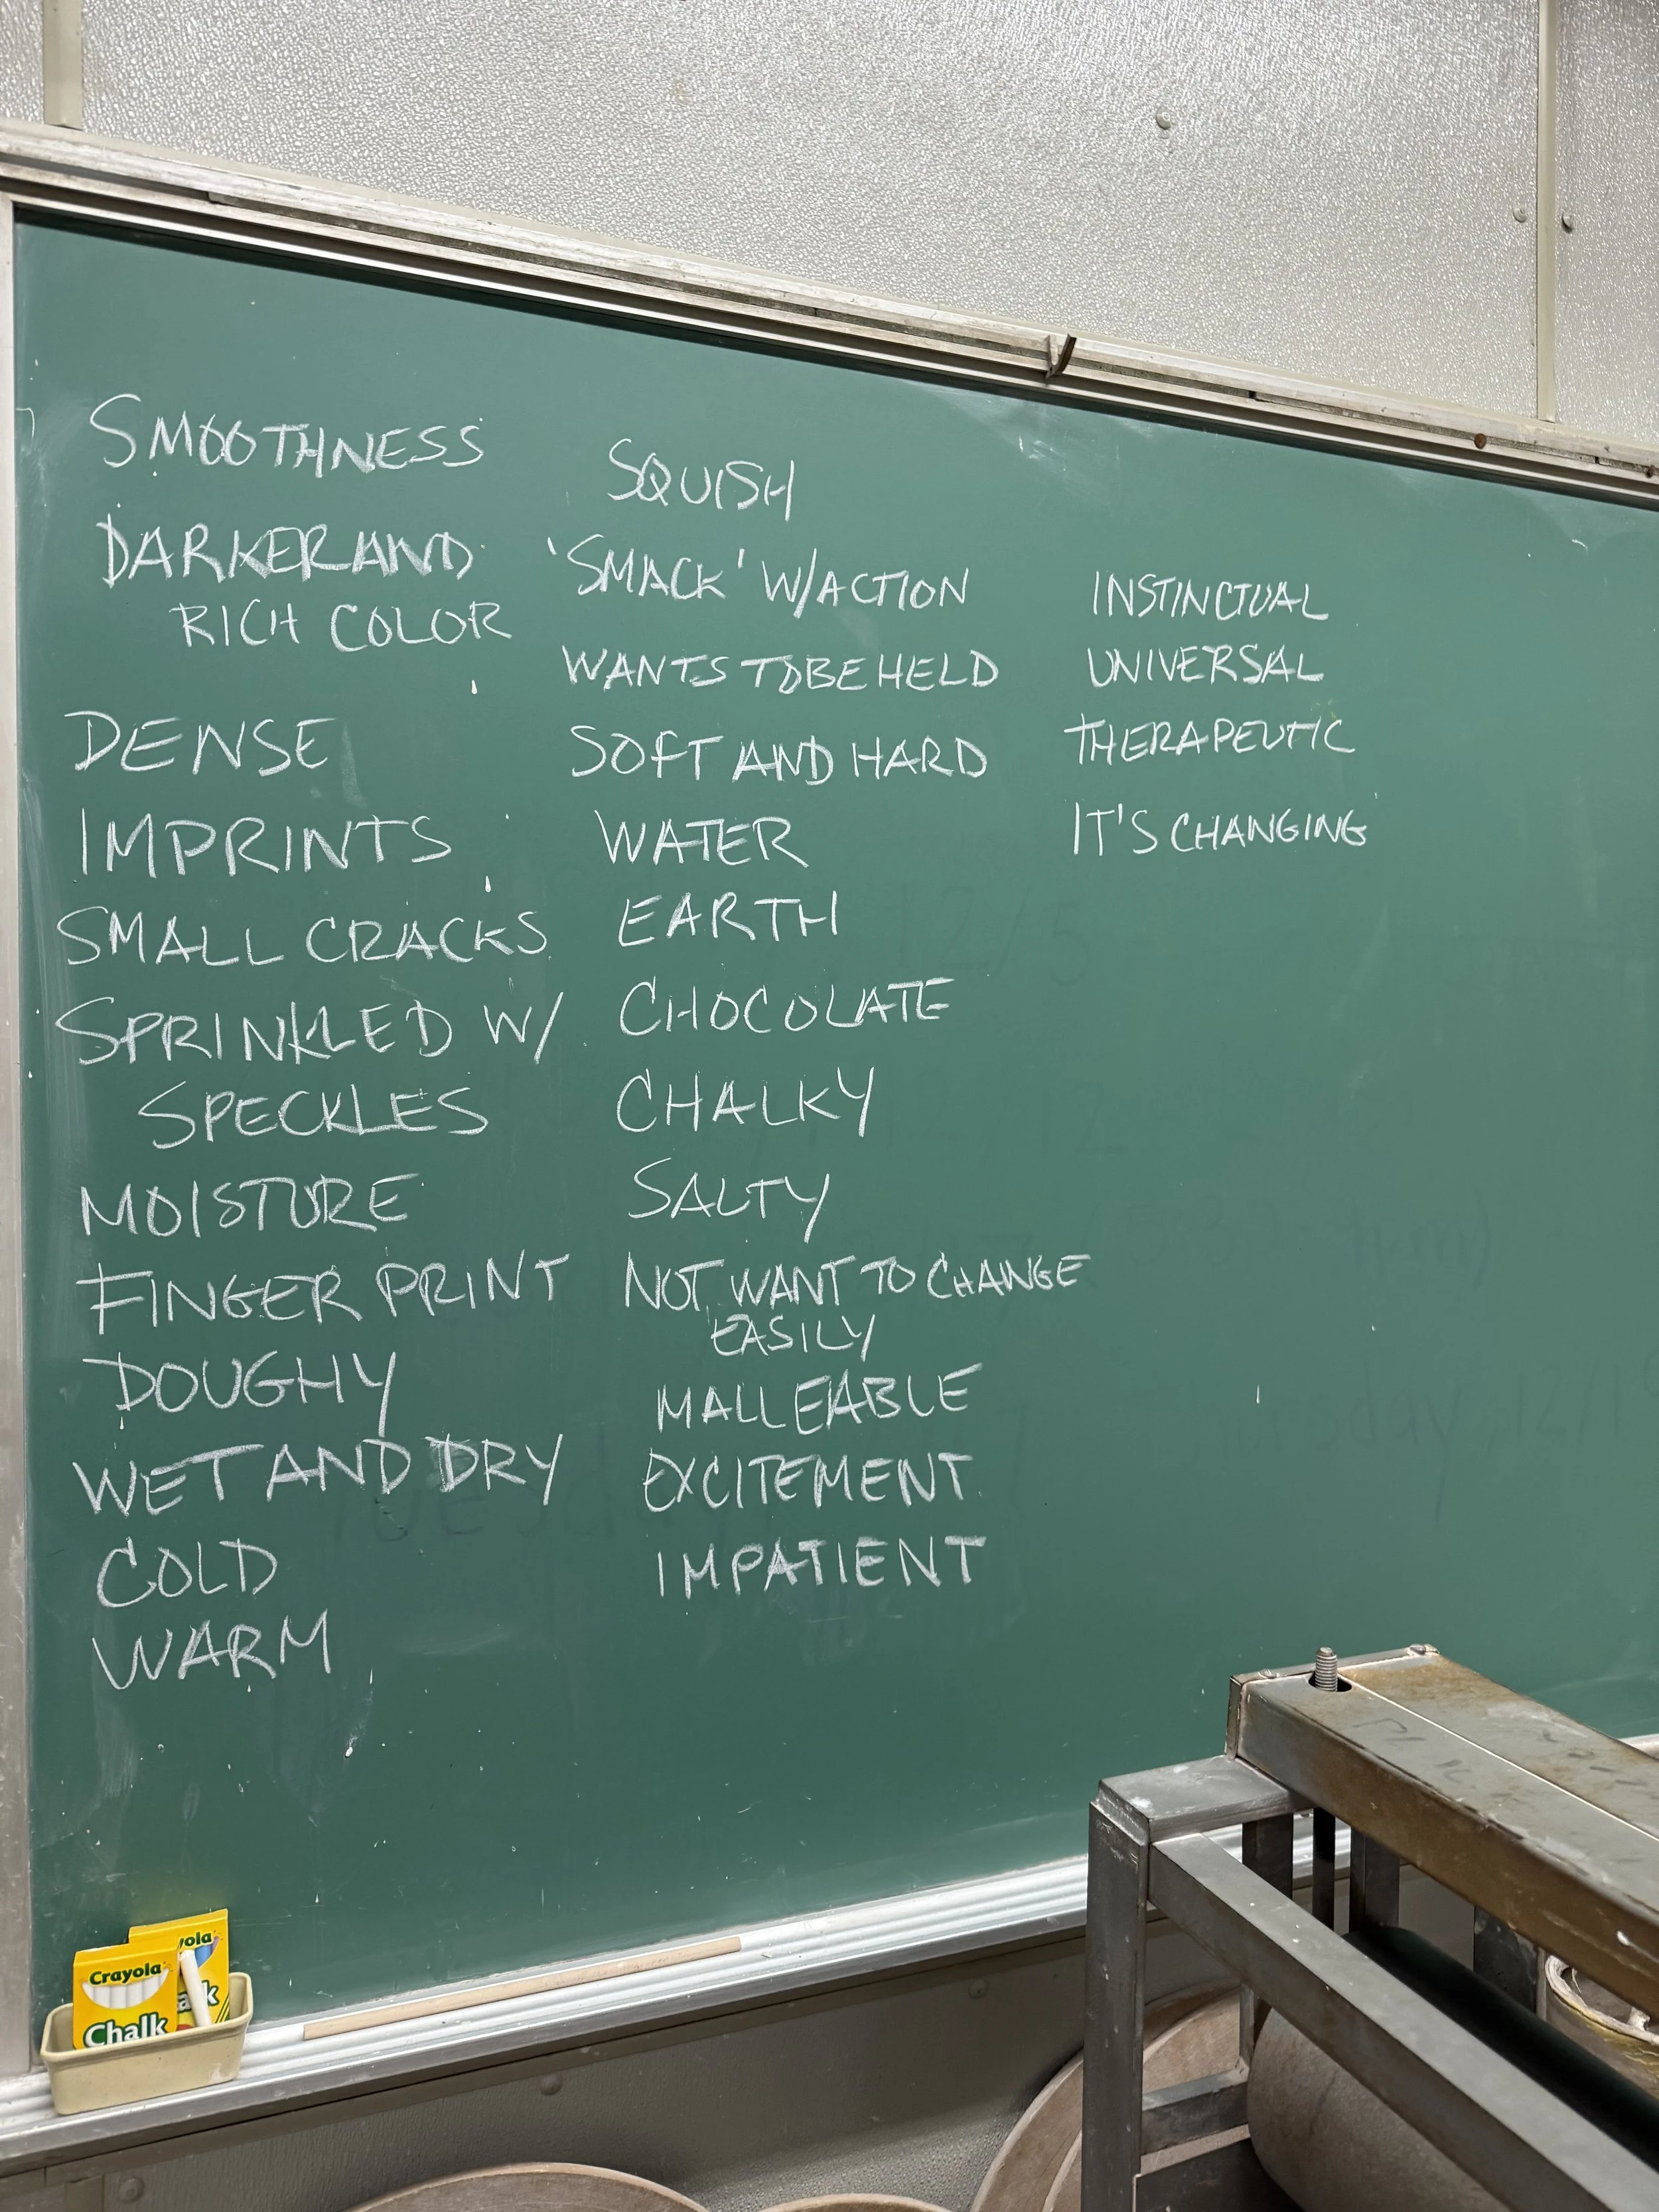 SMOOTHNESS
DARKER AND
RICH COLOR
DENSE
IMPRINTS
SMALL CRACKS
SPRINKLED W/
SPECKLES
MOISTURE
FINGER PRINT
DOUGHY
WET AND DRY
COLD
WARM
SQUISH
'SMACK' W/ACTION
WANTS TO BE HELD
SOFT AND HARD
WATER
EARTH
CHOCOLATE
CHALKY
SALTY
NOT WANT TO CHANGE
EASILY
MALLEABLE
EXCITEMENT
IMPATIENT
INSTINCTUAL
UNIVERSAL
THERAPEUTIC
IT'S CHANGING
12/5
Crayola
Chalk